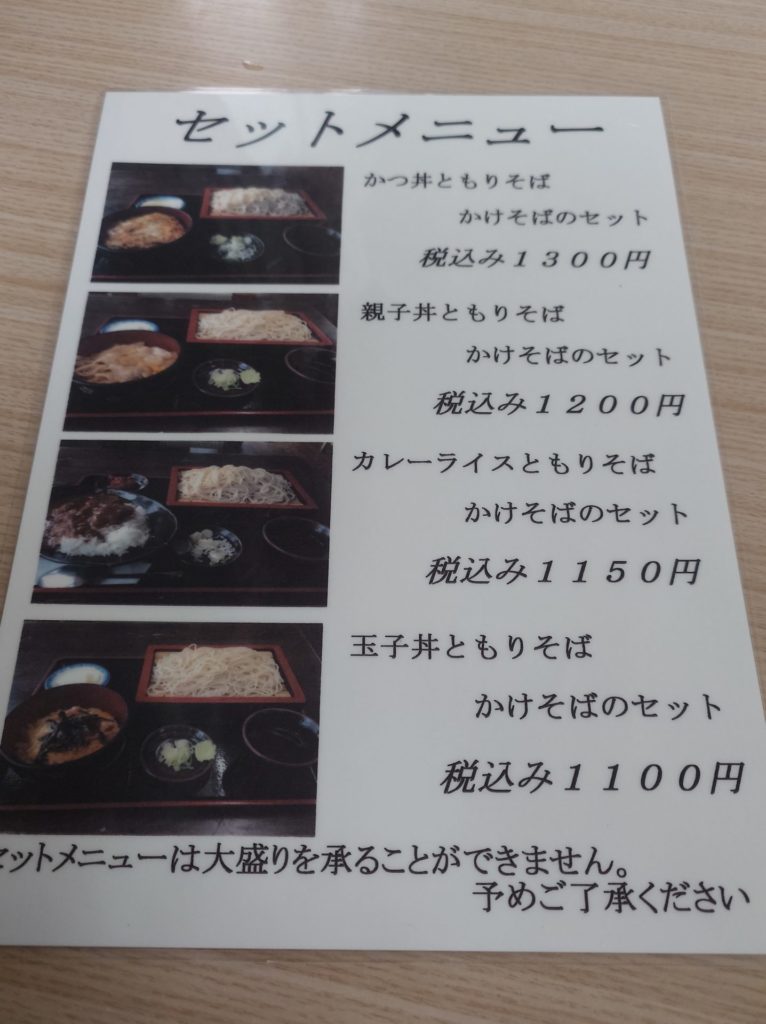 セットメニュー
かつ丼ともりそば
かけそばのセット
税込み１３００円
親子丼ともりそば
かけそばのセット
税込み１２００円
カレーライスともりそば
かけそばのセット
税込み１１５０円
玉子丼ともりそば
かけそばのセット
税込み１１００円
セットメニューは大盛りを承ることができません。
予めご了承ください